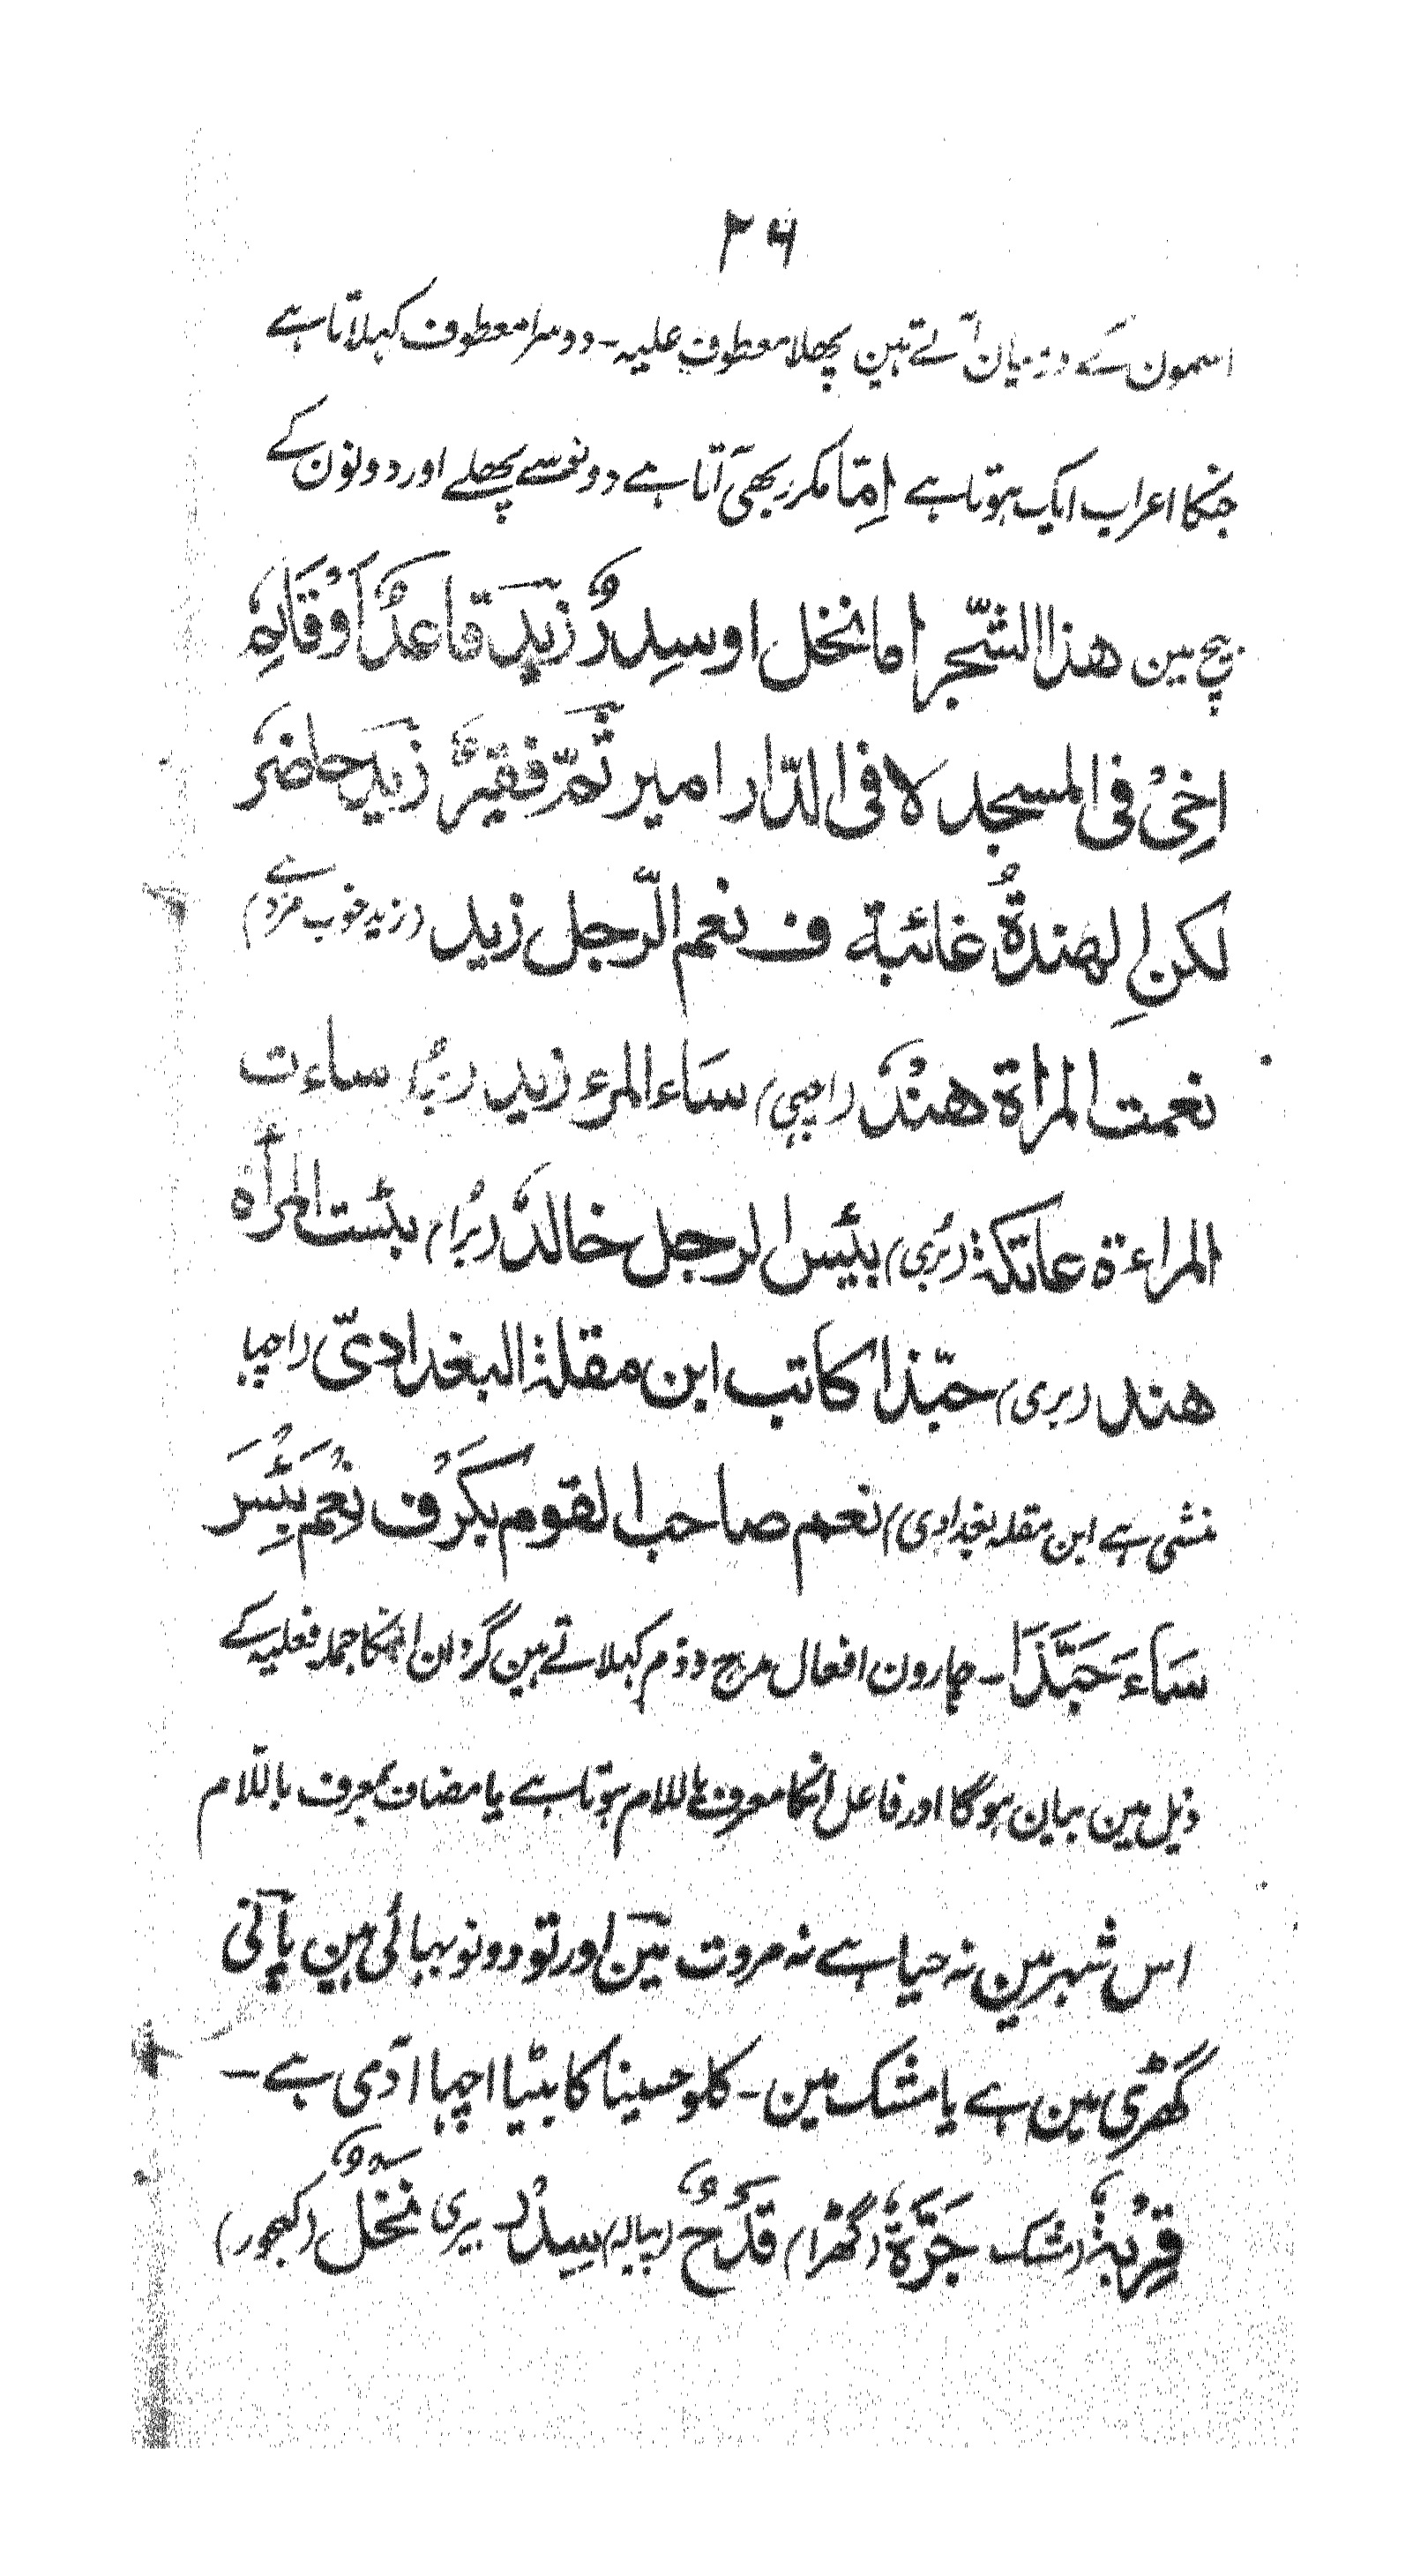 ۲۶
اسمون کے درمیان آتے ہین پچھلا معطوف علیہ۔ دوسرا معطوف کہلاتا ہے
جنکا اعراب ایک ہوتا ہے اِمّا مکرر بھی آتا ہے دونو سے پچھلے اور دونون کے
بیچ مین هذا الشّجر اما نخل او سِدرٌ زید قاعدٌ اَوْ قَائِمٌ
اخِیْ فی المسجد لا فی الدّار امیر ثمّ فقیرٌ زید حاضرٌ
لکنِ الهندةُ غائبة ف نعم الرّجل زید (زید خوب مردے)
نعمت المراة هندٌ (اچھی) ساء المرء زید (بُرا) ساءت
المراءة عاتکة (بُری) بئس الرجل خالدٌ (بُرا) بئست المرأة
هند (بری) حبّذا کاتب ابن مقلة البغدادیّ (اچھا
منشی ہے ابن مقلہ بغدادی) نعم صاحب القوم بکرٌ ف نِعْمَ بِئْسَ
سَاءَ حَبَّذَا۔ چارون افعال مدح وذم کہلاتے ہین گردان انکا جملہ فعلیہ کے
ذیل مین بیان ہوگا اور فاعل انکا معرف باللام ہوتا ہے یا مضاف بمعرف باللّام
اس شہر مین نہ حیا ہے نہ مروت مین اور تو دونو بہائی ہین پانی
گھڑی مین ہے یا مشک مین۔ کلو حسینا کا بیٹا اچھا آدمی ہے۔
قِرْبَةٌ (مشک جَرَّةٌ (گھڑا) قَدَحٌ (پیالہ) سِدْرٌ بیری نَخْلٌ (کھجور)